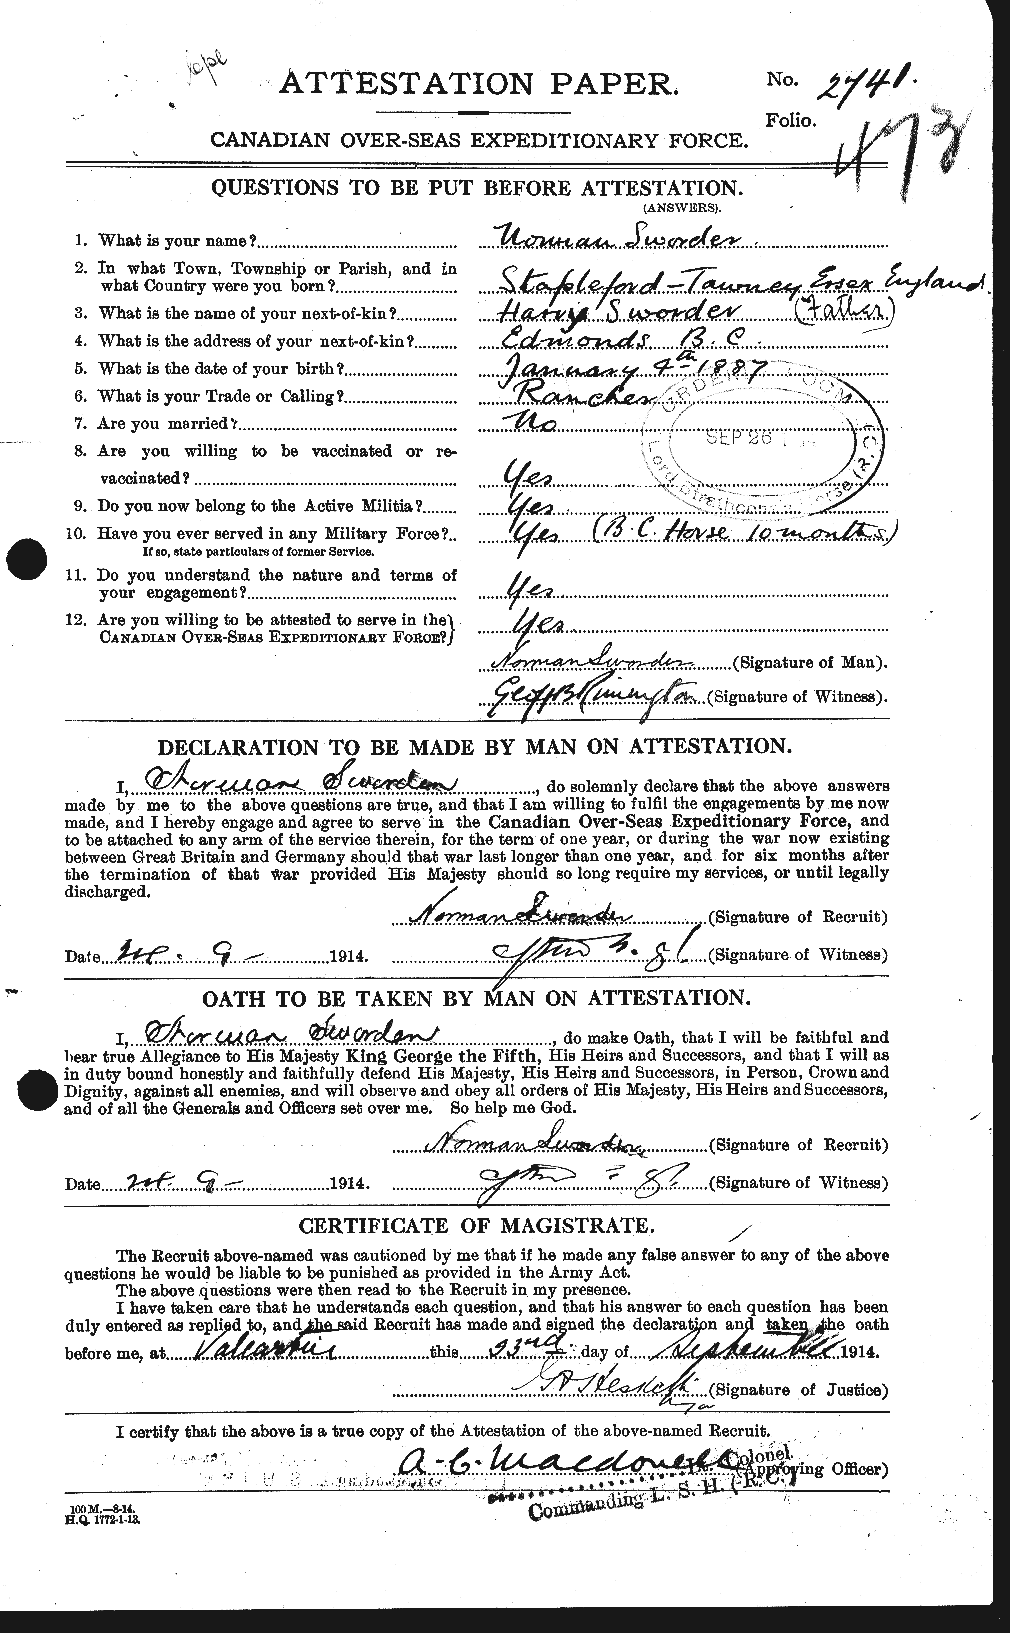 ATTESTATION PAPER.
No. 2741.
Folio.
CANADIAN OVER-SEAS EXPEDITIONARY FORCE.
QUESTIONS TO BE PUT BEFORE ATTESTATION.
(ANSWERS).
1. What is your name? Norman Sworder
2. In what Town, Township or Parish, and in
what Country were you born? Stapleford-Tawney Essex England
3. What is the name of your next-of-kin? Sworder (Father)
4. What is the address of your next-of-kin? Edmonds B.C.
5. What is the date of your birth? January 4th 1887
6. What is your Trade or Calling? Rancher
7. Are you married? No
8. Are you willing to be vaccinated or re-
vaccinated? Yes
9. Do you now belong to the Active Militia? Yes
10. Have you ever served in any Military Force? Yes (B.C. Horse 10 months)
If so, state particulars of former Service.
11. Do you understand the nature and terms of
your engagement? Yes
12. Are you willing to be attested to serve in the
CANADIAN OVER-SEAS EXPEDITIONARY FORCE? Yes
ORDERLY ROOM
SEP 26
Lord Strathcona's Horse (R.C.)
Norman Sworder (Signature of Man).
Geoff B Rimington (Signature of Witness).
DECLARATION TO BE MADE BY MAN ON ATTESTATION.
I, Norman Sworder, do solemnly declare that the above answers
made by me to the above questions are true, and that I am willing to fulfil the engagements by me now
made, and I hereby engage and agree to serve in the Canadian Over-Seas Expeditionary Force, and
to be attached to any arm of the service therein, for the term of one year, or during the war now existing
between Great Britain and Germany should that war last longer than one year, and for six months after
the termination of that war provided His Majesty should so long require my services, or until legally
discharged.
Norman Sworder (Signature of Recruit)
Date 1914. (Signature of Witness)
OATH TO BE TAKEN BY MAN ON ATTESTATION.
I, Norman Sworder, do make Oath, that I will be faithful and
bear true Allegiance to His Majesty King George the Fifth, His Heirs and Successors, and that I will as
in duty bound honestly and faithfully defend His Majesty, His Heirs and Successors, in Person, Crown and
Dignity, against all enemies, and will observe and obey all orders of His Majesty, His Heirs and Successors,
and of all the Generals and Officers set over me. So help me God.
Norman Sworder (Signature of Recruit)
Date 1914. (Signature of Witness)
CERTIFICATE OF MAGISTRATE.
The Recruit above-named was cautioned by me that if he made any false answer to any of the above
questions he would be liable to be punished as provided in the Army Act.
The above questions were then read to the Recruit in my presence.
I have taken care that he understands each question, and that his answer to each question has been
duly entered as replied to, and the said Recruit has made and signed the declaration and taken the oath
before me, at Valcartier this 23rd day of September 1914.
(Signature of Justice)
I certify that the above is a true copy of the Attestation of the above-named Recruit.
A.C. Macdonell Lt. Colonel.
(Approving Officer)
Commanding L. S. H. (R.C.)
100 M.—8-14.
H.Q. 1772-1-13.